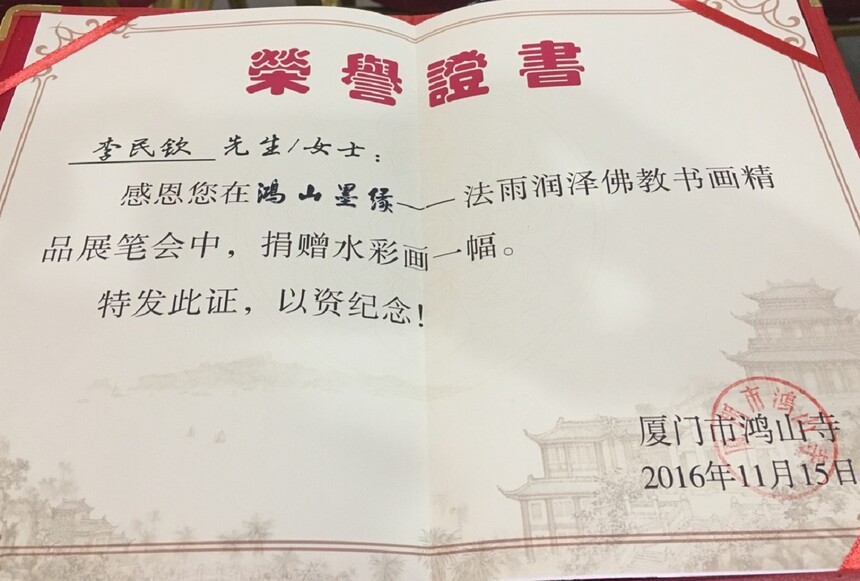 榮譽證書
李民钦 先生/女士：
感恩您在鸿山墨缘——法雨润泽佛教书画精
品展笔会中，捐赠水彩画一幅。
特发此证，以资纪念！
厦门市鸿山寺
2016年11月15日
厦门市鸿山寺